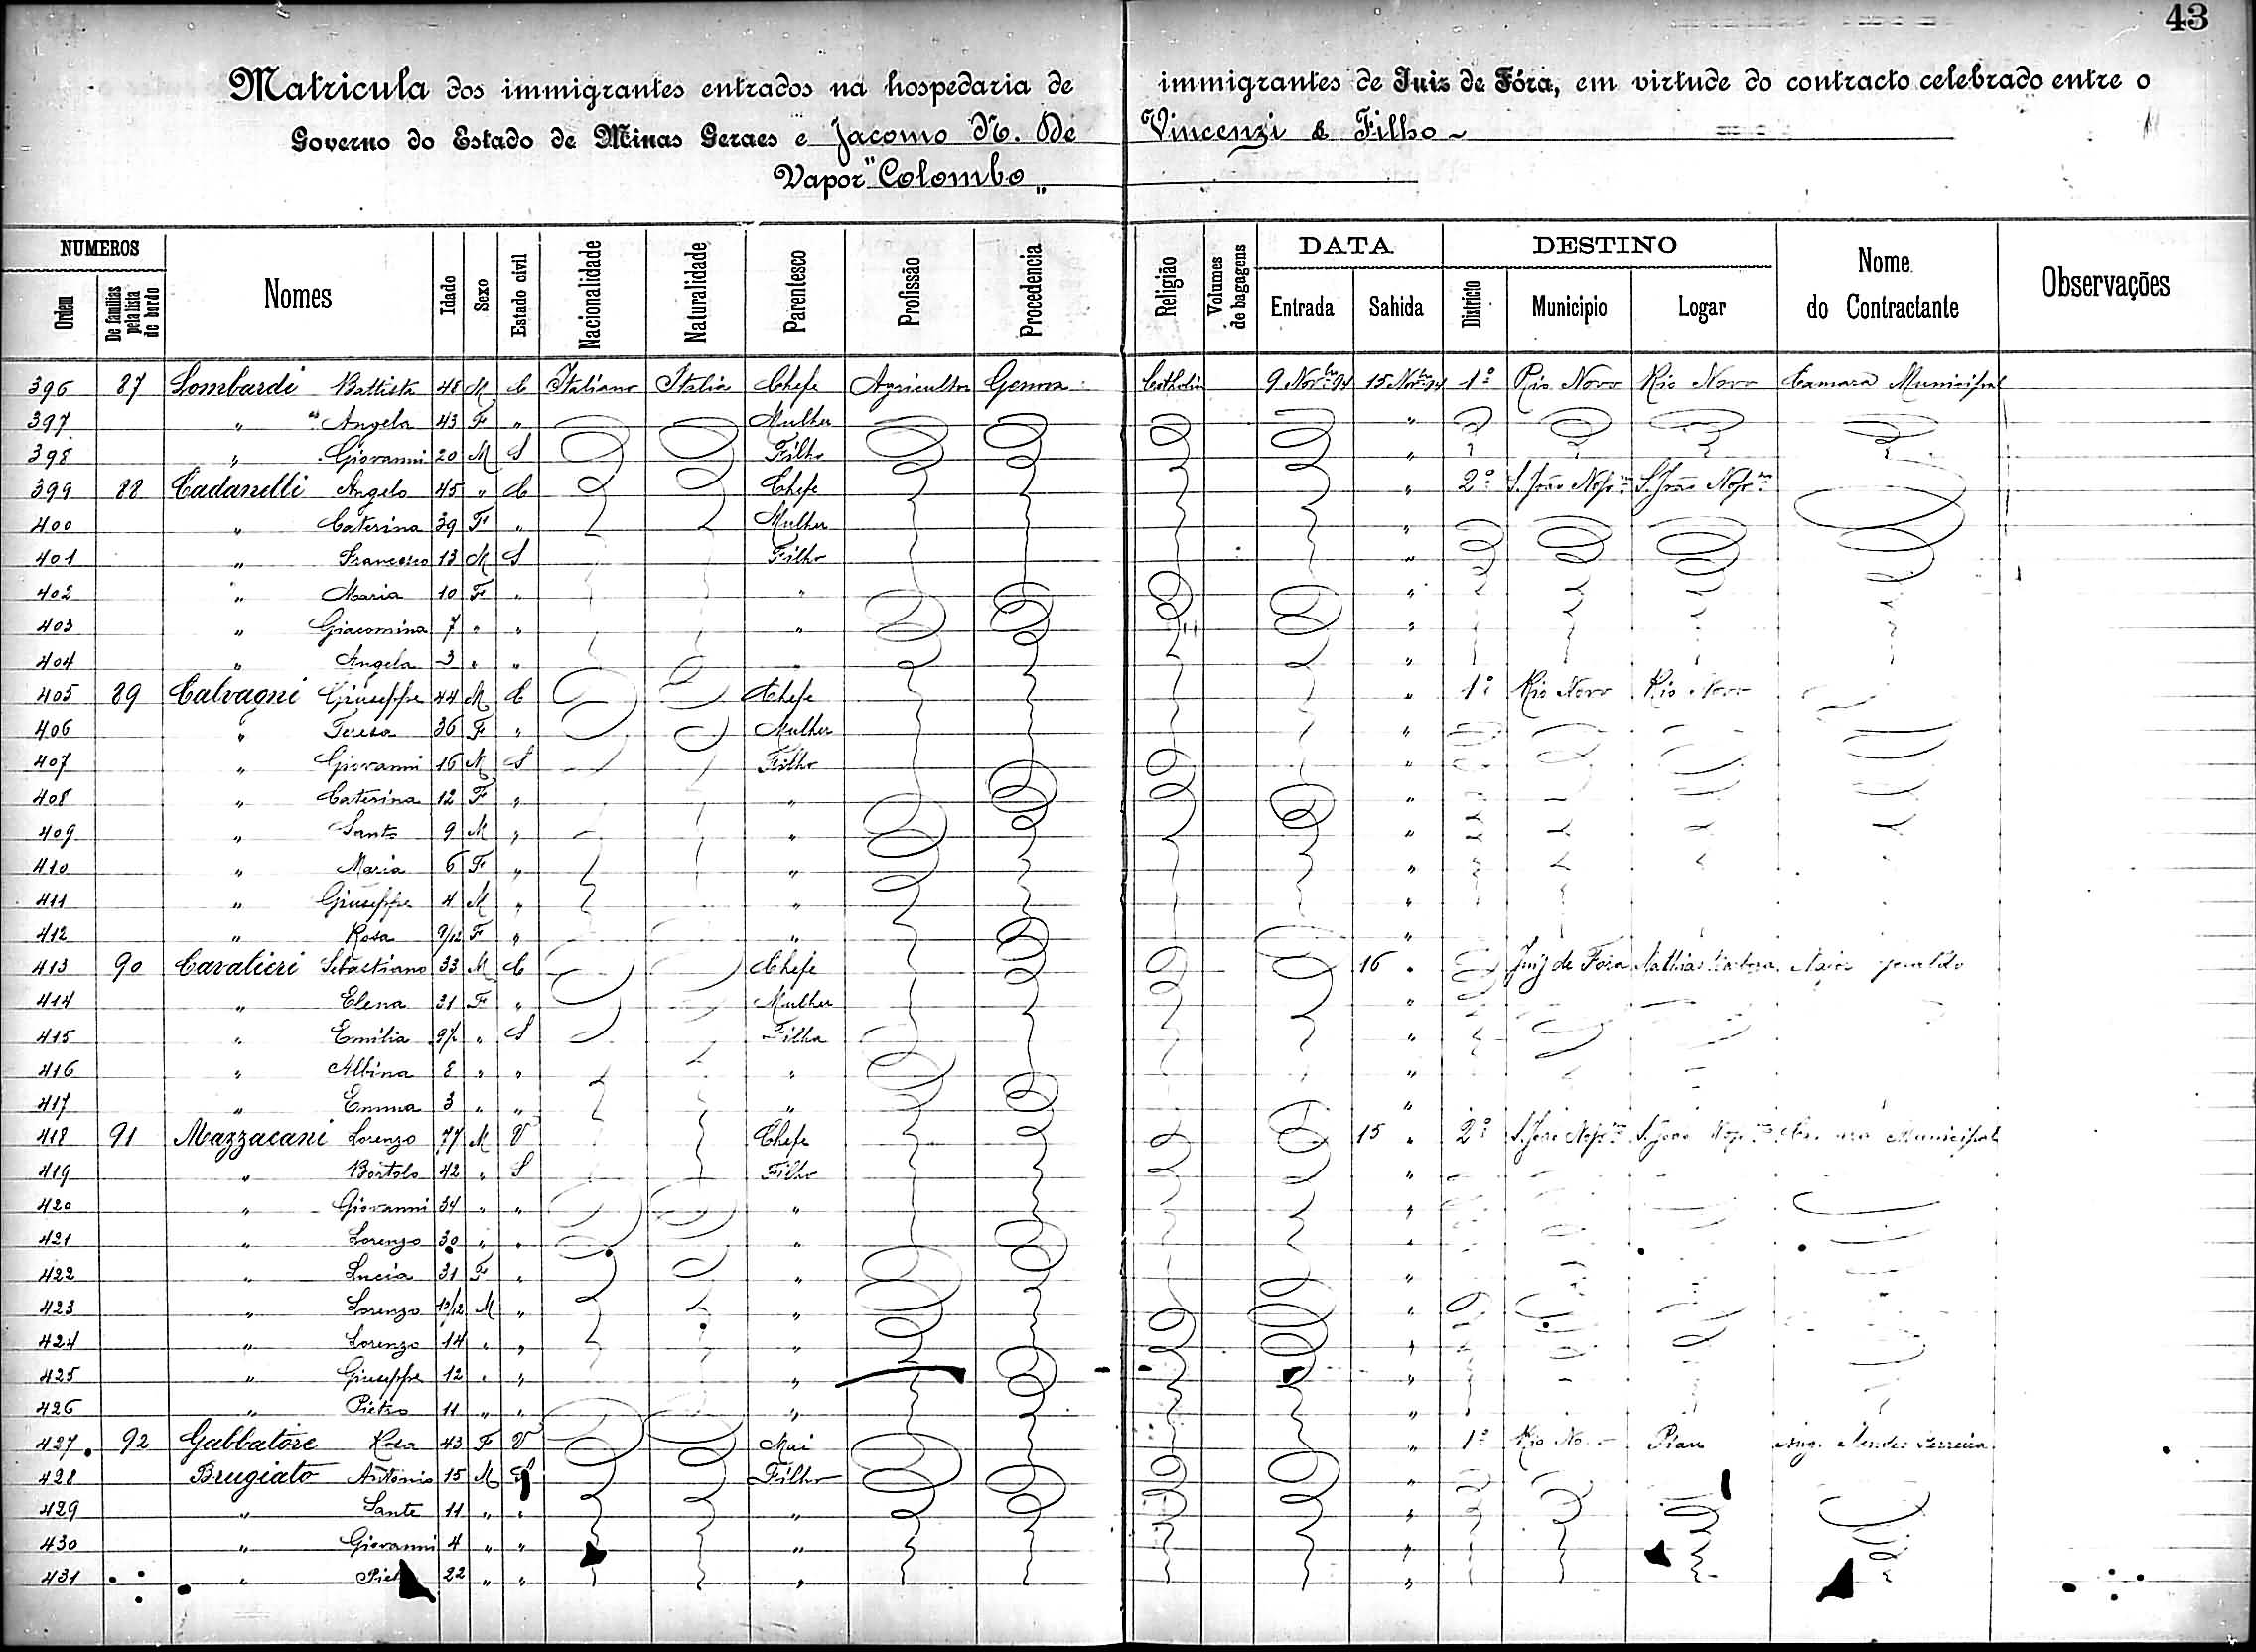 43
Matricula dos immigrantes entrados na hospedaria de immigrantes de Juiz de Fóra, em virtude do contracto celebrado entre o
Governo do Estado de Minas Geraes e Jacomo N. De Vincenzi & Filho
Vapor "Colombo"
NUMEROS DATA DESTINO
Ordem De familias pela lista de bordo Nomes Idade Sexo Estado civil Nacionalidade Naturalidade Parentesco Profissão Procedencia Religião Volumes de bagagens Entrada Sahida Districto Municipio Logar Nome do Contractante Observações
396 87 Lombardi Battista 48 M C Italiano Italia Chefe Agricultor Genova Catholica 9 Novbro 94 15 Novbro 94 1º Rio Novo Rio Novo Camara Municipal
397 " Angela 43 F " Mulher "
398 " Giovanni 20 M S Filho "
399 88 Cadanelli Angelo 45 " C Chefe " 2º S. João Nepno S. João Nepno
400 " Caterina 39 F " Mulher "
401 " Francesco 13 M S Filho "
402 " Maria 10 F " " "
403 " Giacomina 7 " " " "
404 " Angela 3 " " " "
405 89 Calvagni Giuseppe 44 M C Chefe " 1º Rio Novo Rio Novo
406 " Teresa 36 F " Mulher "
407 " Giovanni 16 M S Filho "
408 " Caterina 12 F " " "
409 " Santo 9 M " " "
410 " Maria 6 F " " "
411 " Giuseppe 4 M " " "
412 " Rosa 9/12 F " " "
413 90 Cavalieri Sebastiano 33 M C Chefe 16 " Juiz de Fóra Mathias Barbosa Major
414 " Elena 31 F " Mulher "
415 " Emilia " S Filha "
416 " Albina 8 " " " "
417 " Emma 3 " " " "
418 91 Mazzacani Lorenzo 77 M V Chefe 15 " 2º S. João Nepno S. João Nepno Camara Municipal
419 " Bortolo 42 " S Filho "
420 " Giovanni 34 " " " "
421 " Lorenzo 30 " " " "
422 " Lucia 31 F " " "
423 " Lorenzo M " " "
424 " Lorenzo 14 " " " "
425 " Giuseppe 12 " " " "
426 " Pietro 11 " " " "
427 92 Gabbatore Rosa 43 F V Mai " 1º Rio Novo Piau Mendes Ferreira
428 Brugiato Antonio 15 M S Filho "
429 " Sante 11 " " " "
430 " Giovanni 4 " " " "
431 " 22 " " " "